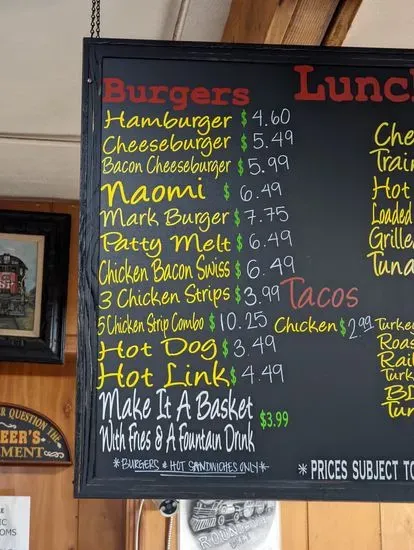 Burgers
Hamburger $4.60
Cheeseburger $5.49
Bacon Cheeseburger $5.99
Naomi $6.49
Mark Burger $7.75
Patty Melt $6.49
Chicken Bacon Swiss $6.49
3 Chicken Strips $3.99
5 Chicken Strip Combo $10.25
Hot Dog $3.49
Hot Link $4.49
Make It A Basket
With Fries & A Fountain Drink $3.99
*BURGERS & HOT SANDWICHES ONLY*
Tacos
Chicken $2.99
Lunc
Che
Train
Hot
Loaded
Grille
Tuna
Turke
Roas
Rail
Turk
BL
Tun
* PRICES SUBJECT TO
R QUESTION THE
EER'S
MENT
IC
OMS
ROUND